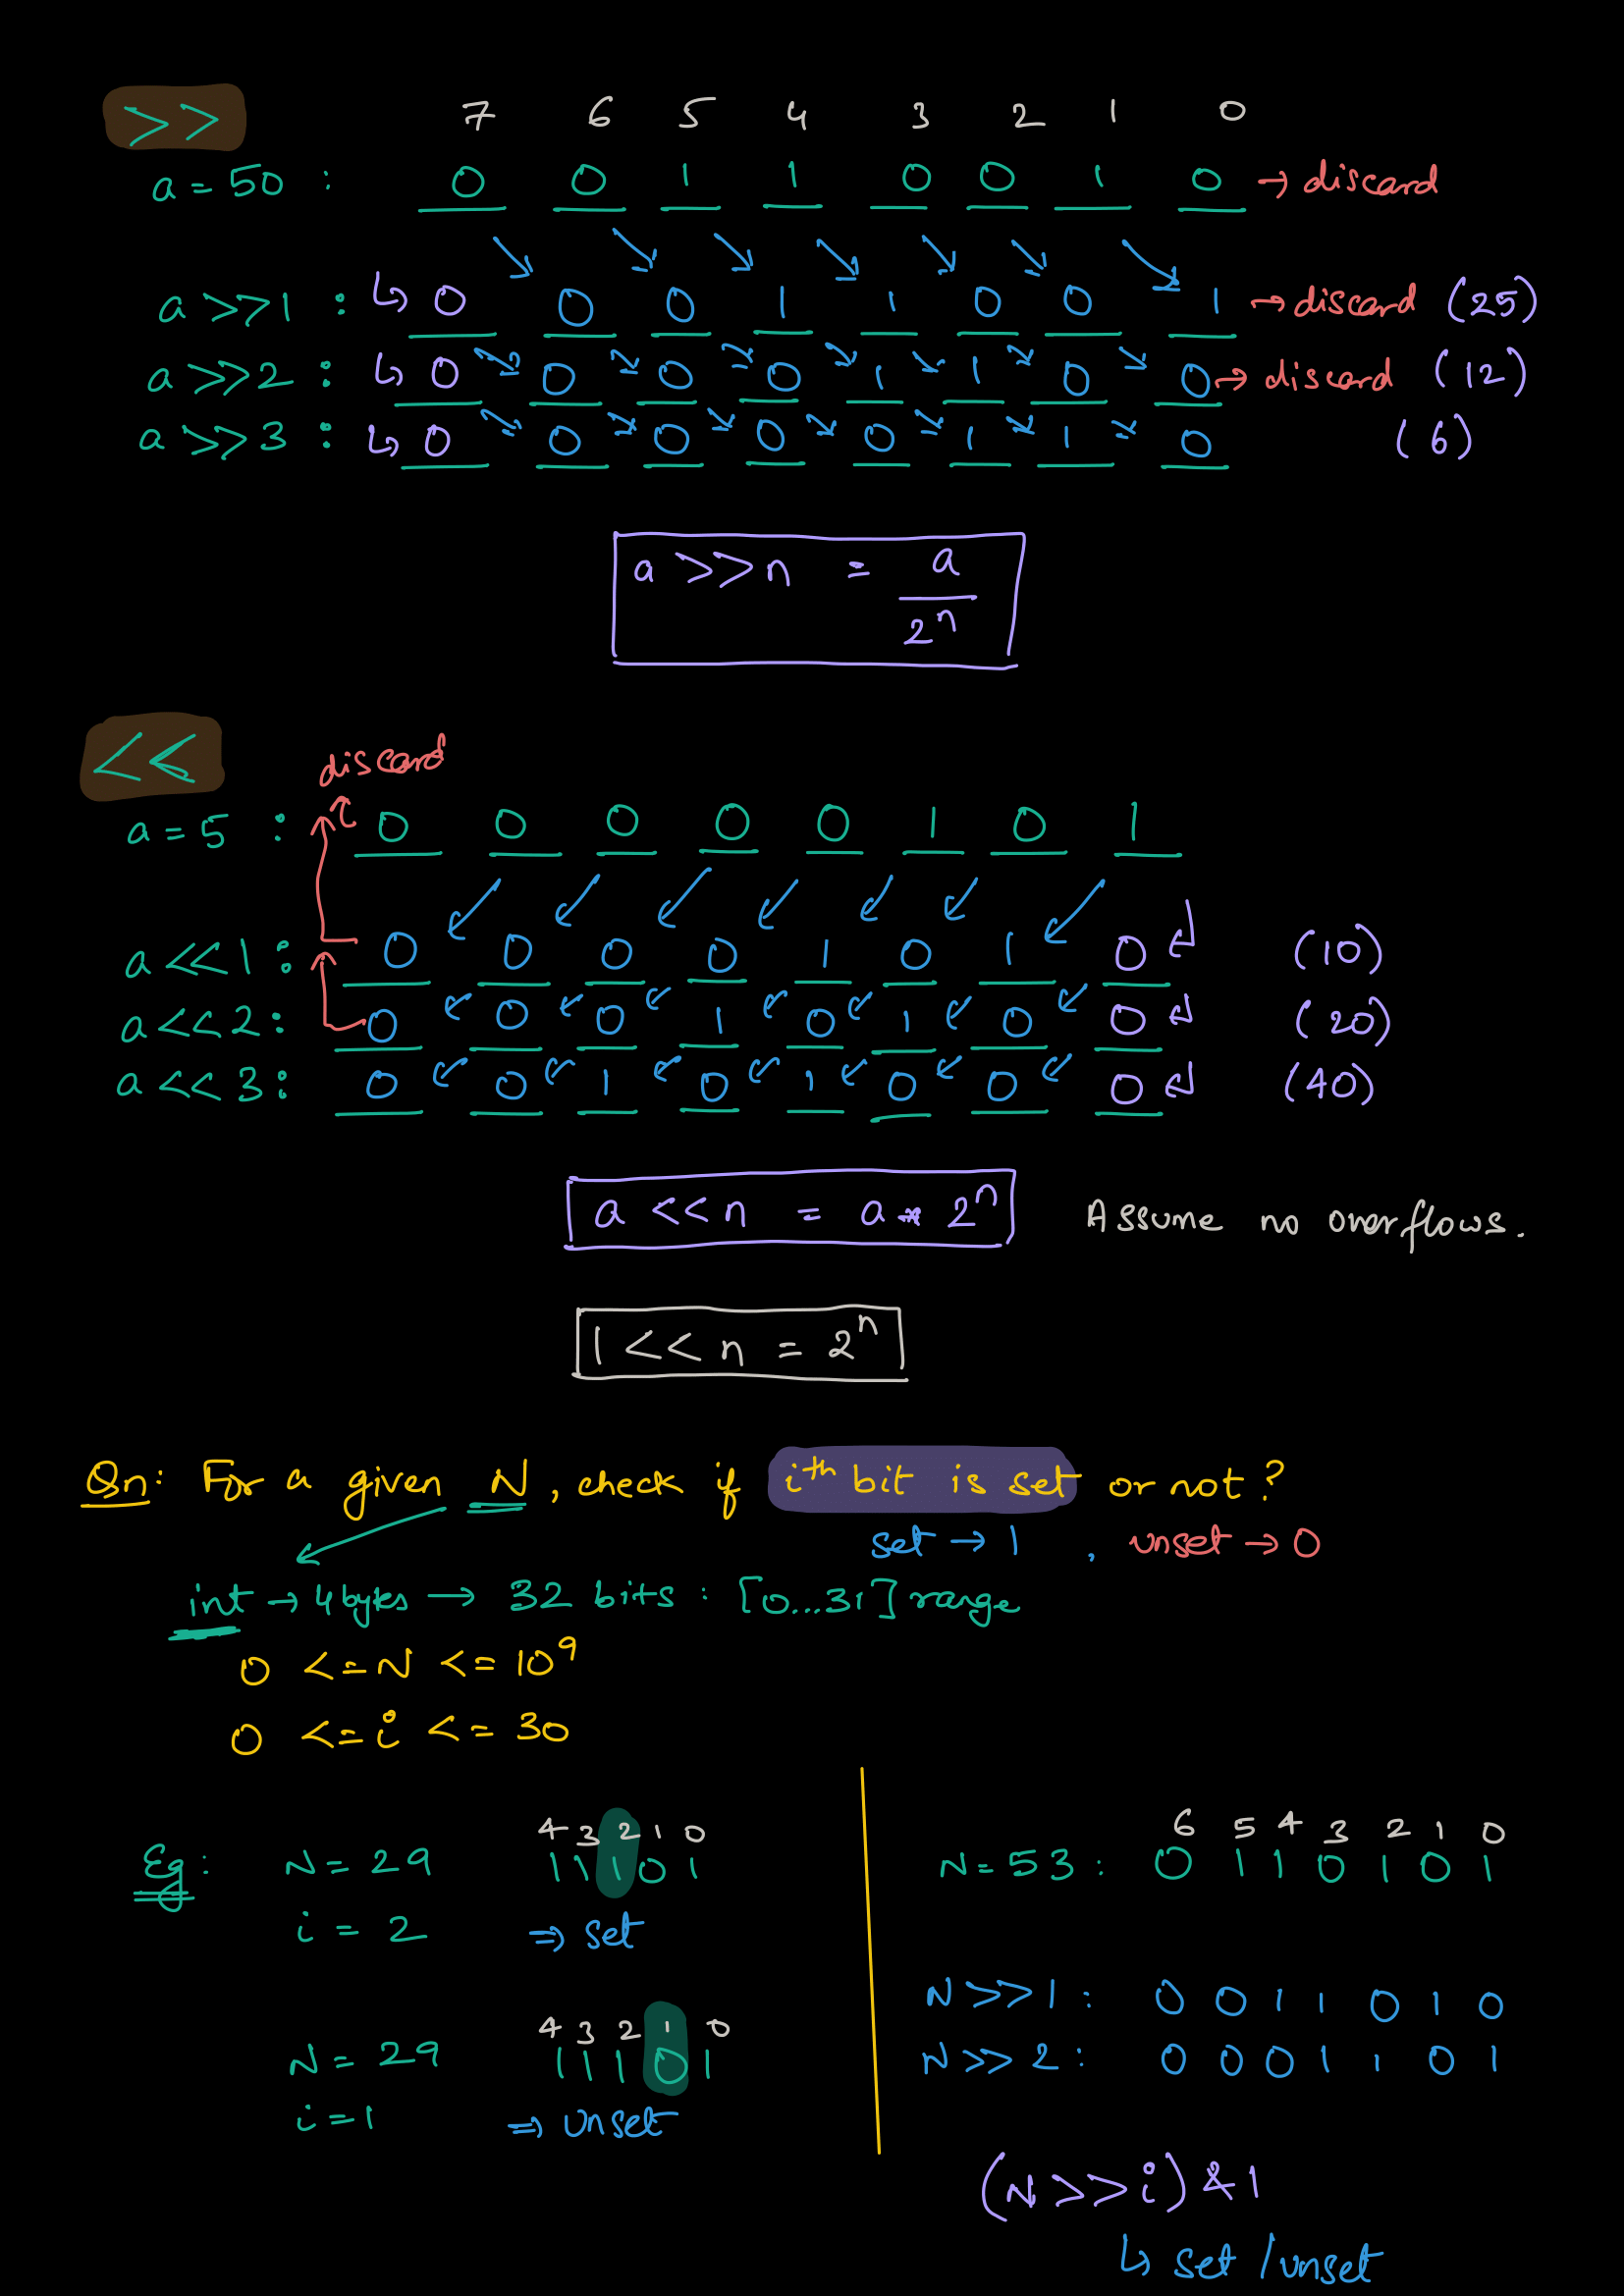 >>
7 6 5 4 3 2 1 0
a = 50 : 0 0 1 1 0 0 1 0 → discard
a >>1 : ↳ 0 0 0 1 1 0 0 1 → discard (25)
a >>2 : ↳ 0 0 0 0 1 1 0 0 → discard (12)
a >>3 : ↳ 0 0 0 0 0 1 1 0 (6)
a >>n = a
2ⁿ
<<
discard
a = 5 : 0 0 0 0 0 1 0 1
a <<1 : 0 0 0 0 1 0 1 0 (10)
a <<2 : 0 0 0 1 0 1 0 0 (20)
a << 3 : 0 0 1 0 1 0 0 0 (40)
a <<n = a * 2ⁿ Assume no overflows.
1 << n = 2ⁿ
Qn: For a given N, check if iᵗʰ bit is set or not?
set → 1 , unset → 0
int → 4 bytes → 32 bits : [0...31] range
0 <= N <= 10⁹
0 <= i <= 30
4 3 2 1 0
Eg : N = 29 1 1 1 0 1
i = 2 ⇒ set
4 3 2 1 0
N = 29 1 1 1 0 1
i = 1 ⇒ unset
6 5 4 3 2 1 0
N = 53 : 0 1 1 0 1 0 1
N >>1 : 0 0 1 1 0 1 0
N >> 2 : 0 0 0 1 1 0 1
(N >> i) & 1
↳ set / unset